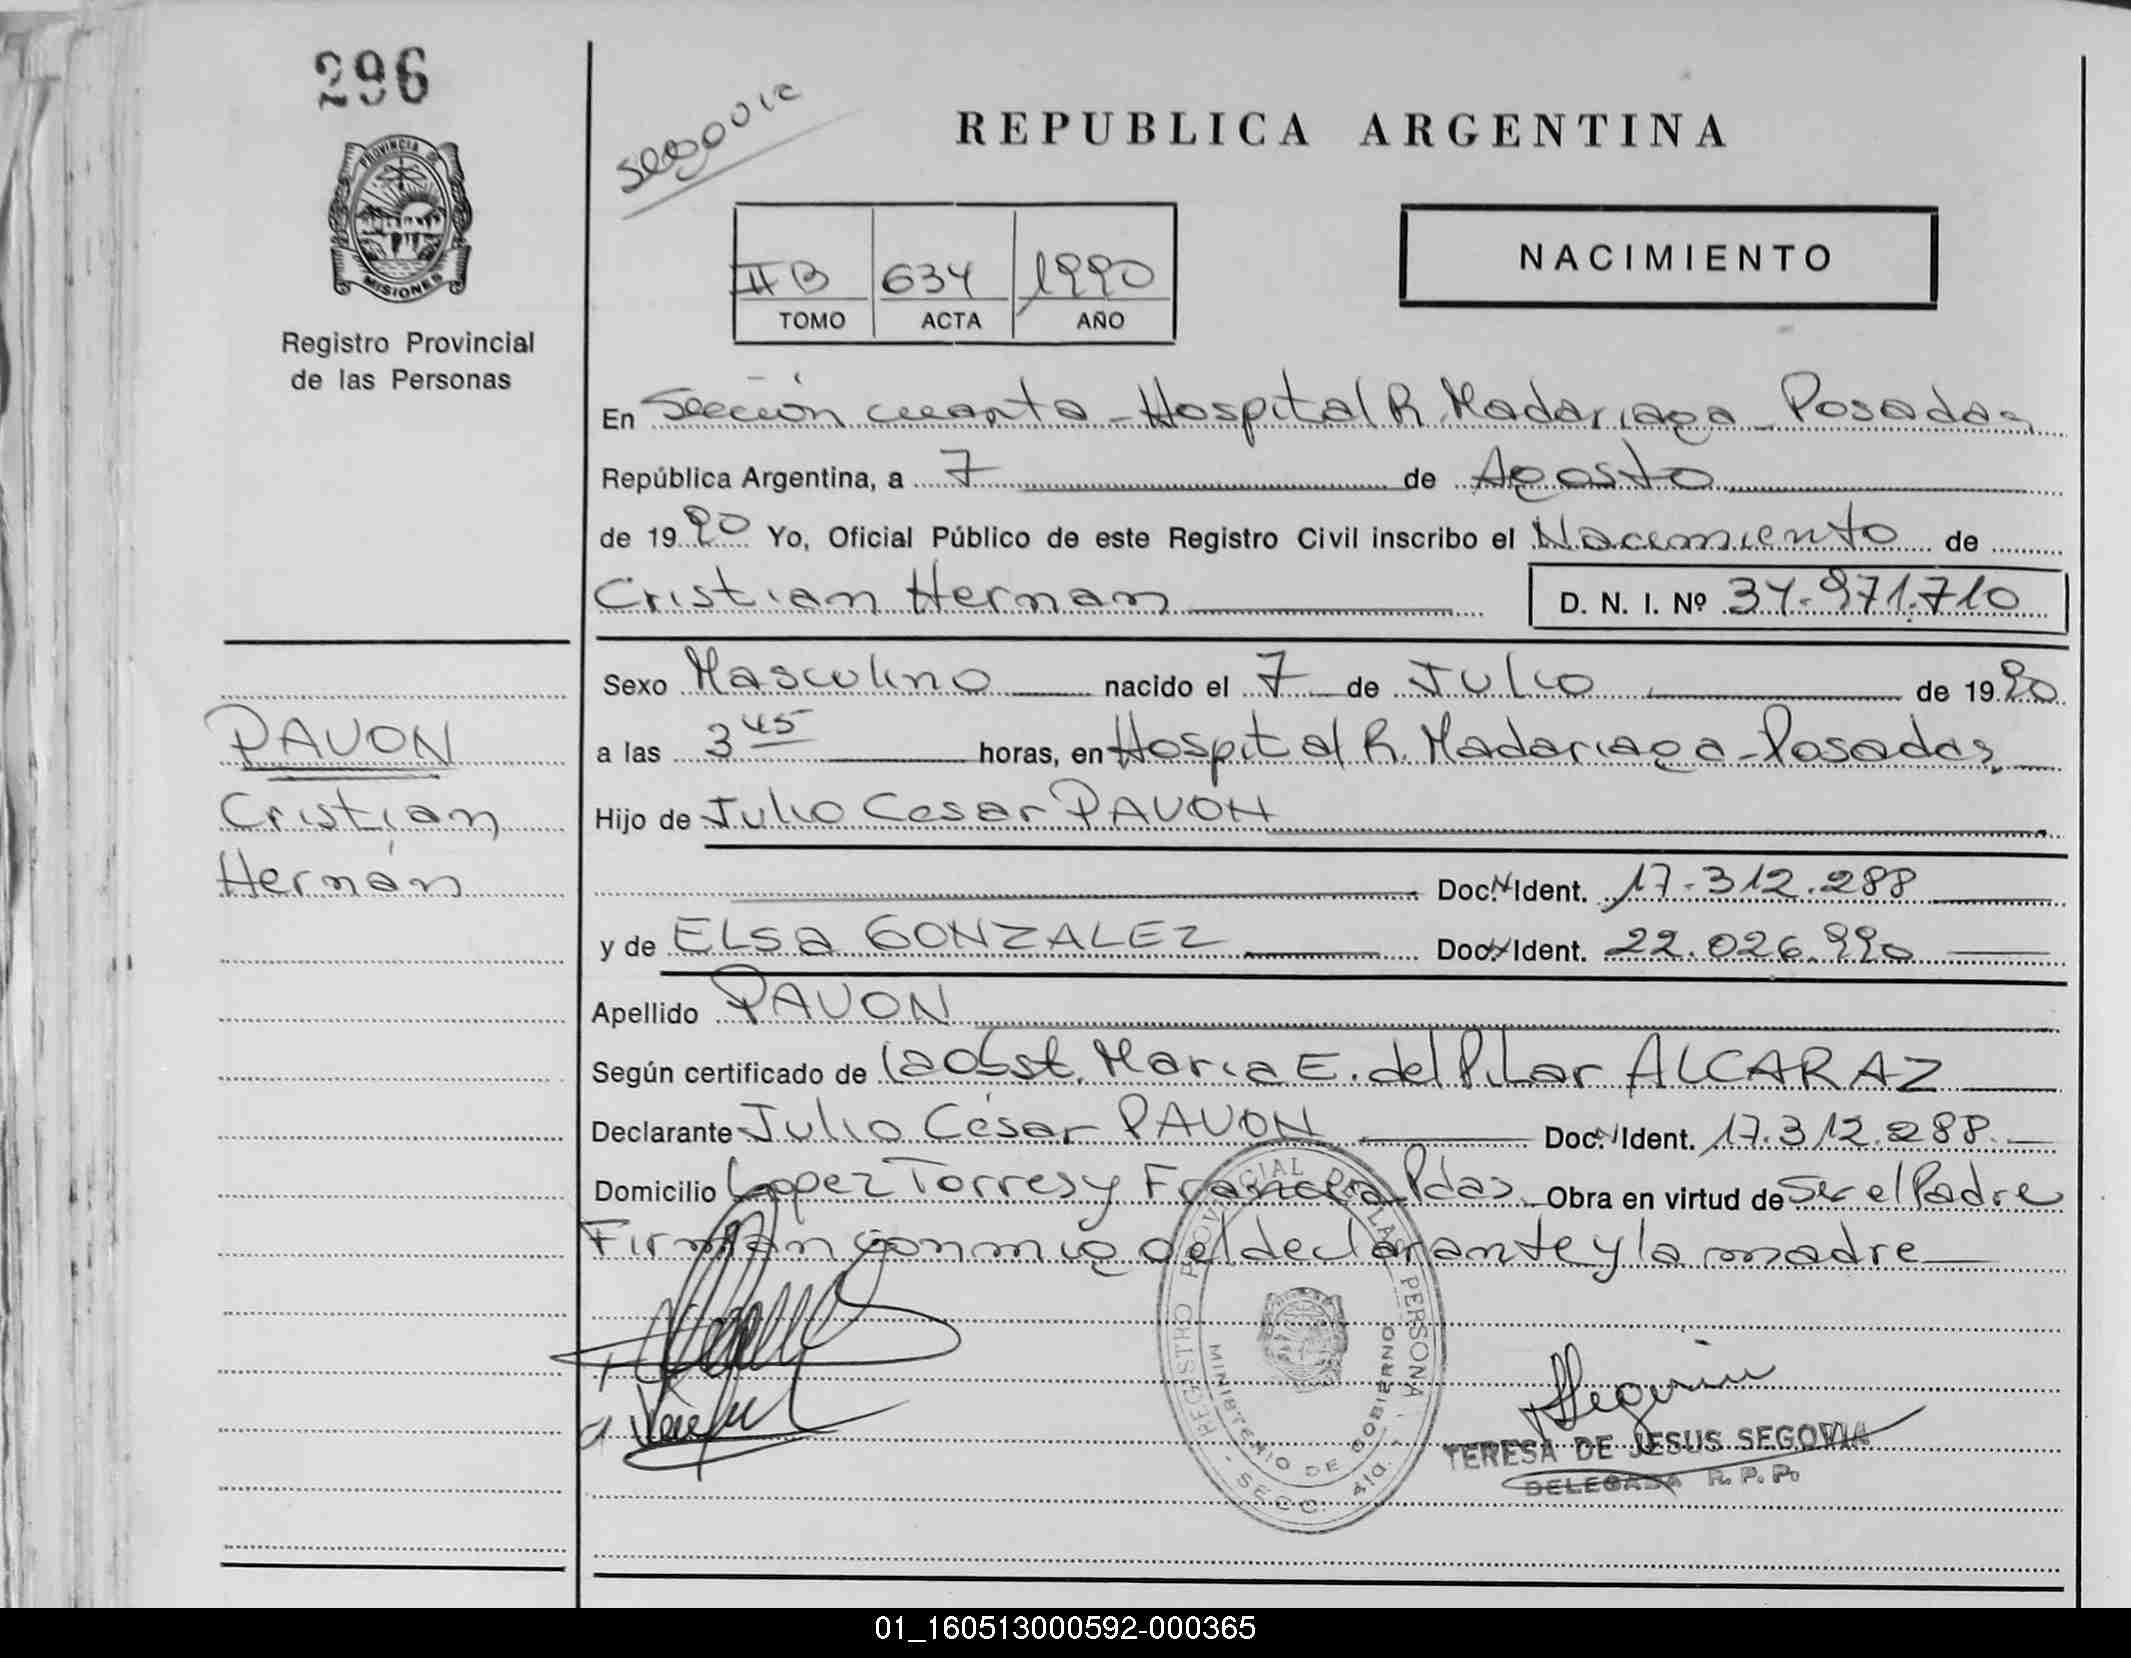 296
segovia
REPUBLICA ARGENTINA
PROVINCIA DE
MISIONES
Registro Provincial
de las Personas
NACIMIENTO
II B 634 1990
TOMO ACTA AÑO
En Sección cuarta - Hospital R. Madariaga - Posadas
República Argentina, a 7 de Agosto
de 1990 Yo, Oficial Público de este Registro Civil inscribo el Nacimiento de
Cristian Hernan D. N. I. Nº 34.971.710
Sexo Masculino nacido el 7 de Julio de 1990
a las 3 45 horas, en Hospital R. Madariaga - Posadas
Hijo de Julio Cesar PAVON
Doc. Ident. 17.312.288
y de ELSA GONZALEZ Doc. Ident. 22.026.990
Apellido PAVON
Según certificado de la Obst. Maria E. del Pilar ALCARAZ
Declarante Julio César PAVON Doc. Ident. 17.312.288
Domicilio Lopez Torres y Francia Pdas. Obra en virtud de Ser el Padre
Firman conmigo el declarante y la madre
PAVON
Cristian
Hernán
REGISTRO PROVINCIAL DE LAS PERSONAS
MINISTERIO DE GOBIERNO
SECC. 4ta.
TERESA DE JESUS SEGOVIA
DELEGADA R. P. P.
01_160513000592-000365